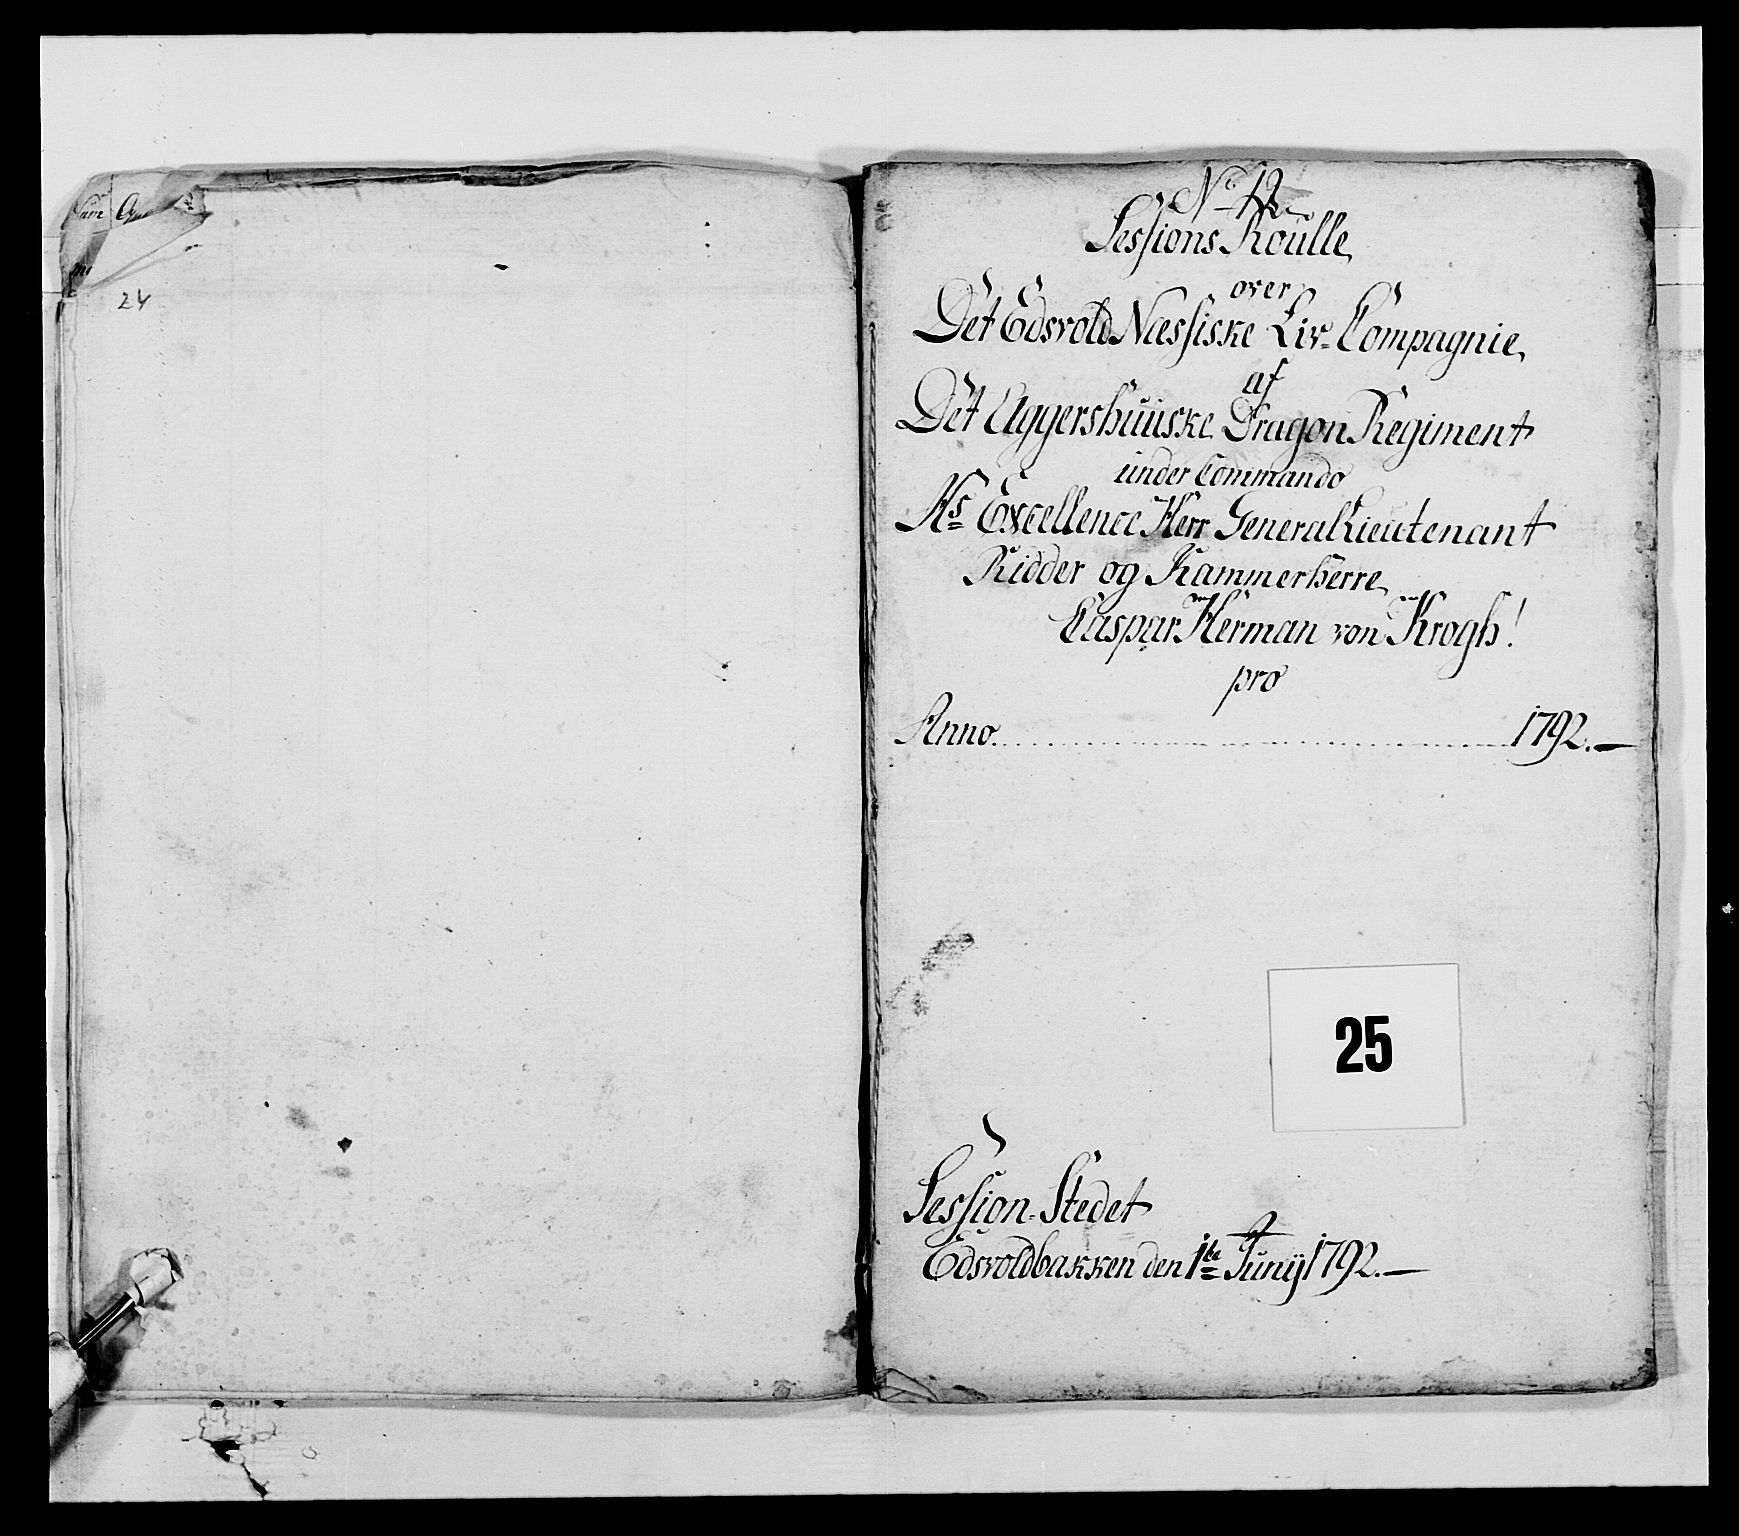 24
No 12
Sessions Roulle
over
Det Edsvold Næssiske Liv-Compagnie
af
Det Aggershuuske Dragon Regiment
under Commando
Hs Excellence Herr General Lieutenant
Ridder og Kammerherre
Caspar Herman von Krogh!
pro
Anno 1792.
25
Session-Stedet
Edsvoldbakken den 1te Junij 1792.